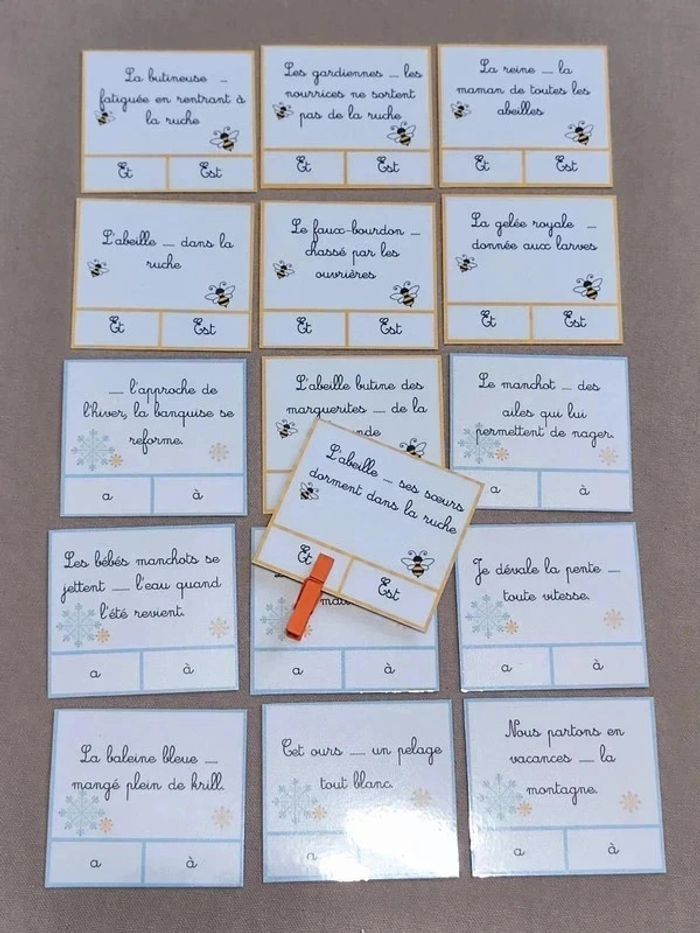 La butineuse _
fatiguée en rentrant à
la ruche
Et Est
Les gardiennes __ les
nourrices ne sortent
pas de la ruche
Et Est
La reine __ la
maman de toutes les
abeilles
Et Est
L'abeille __ dans la
ruche
Et Est
Le faux-bourdon __
chassé par les
ouvrières
Et Est
La gelée royale __
donnée aux larves
Et Est
__ l'approche de
l'hiver, la banquise se
reforme.
a à
L'abeille butine des
marguerites __ de la
Le manchot __ des
ailes qui lui
permettent de nager.
a à
L'abeille __ ses sœurs
dorment dans la ruche
Et Est
Les bébés manchots se
jettent __ l'eau quand
l'été revient.
a à
a à
Je dévale la pente __
toute vitesse.
a à
La baleine bleue __
mangé plein de krill.
a à
Cet ours __ un pelage
tout blanc.
a à
Nous partons en
vacances __ la
montagne.
a à